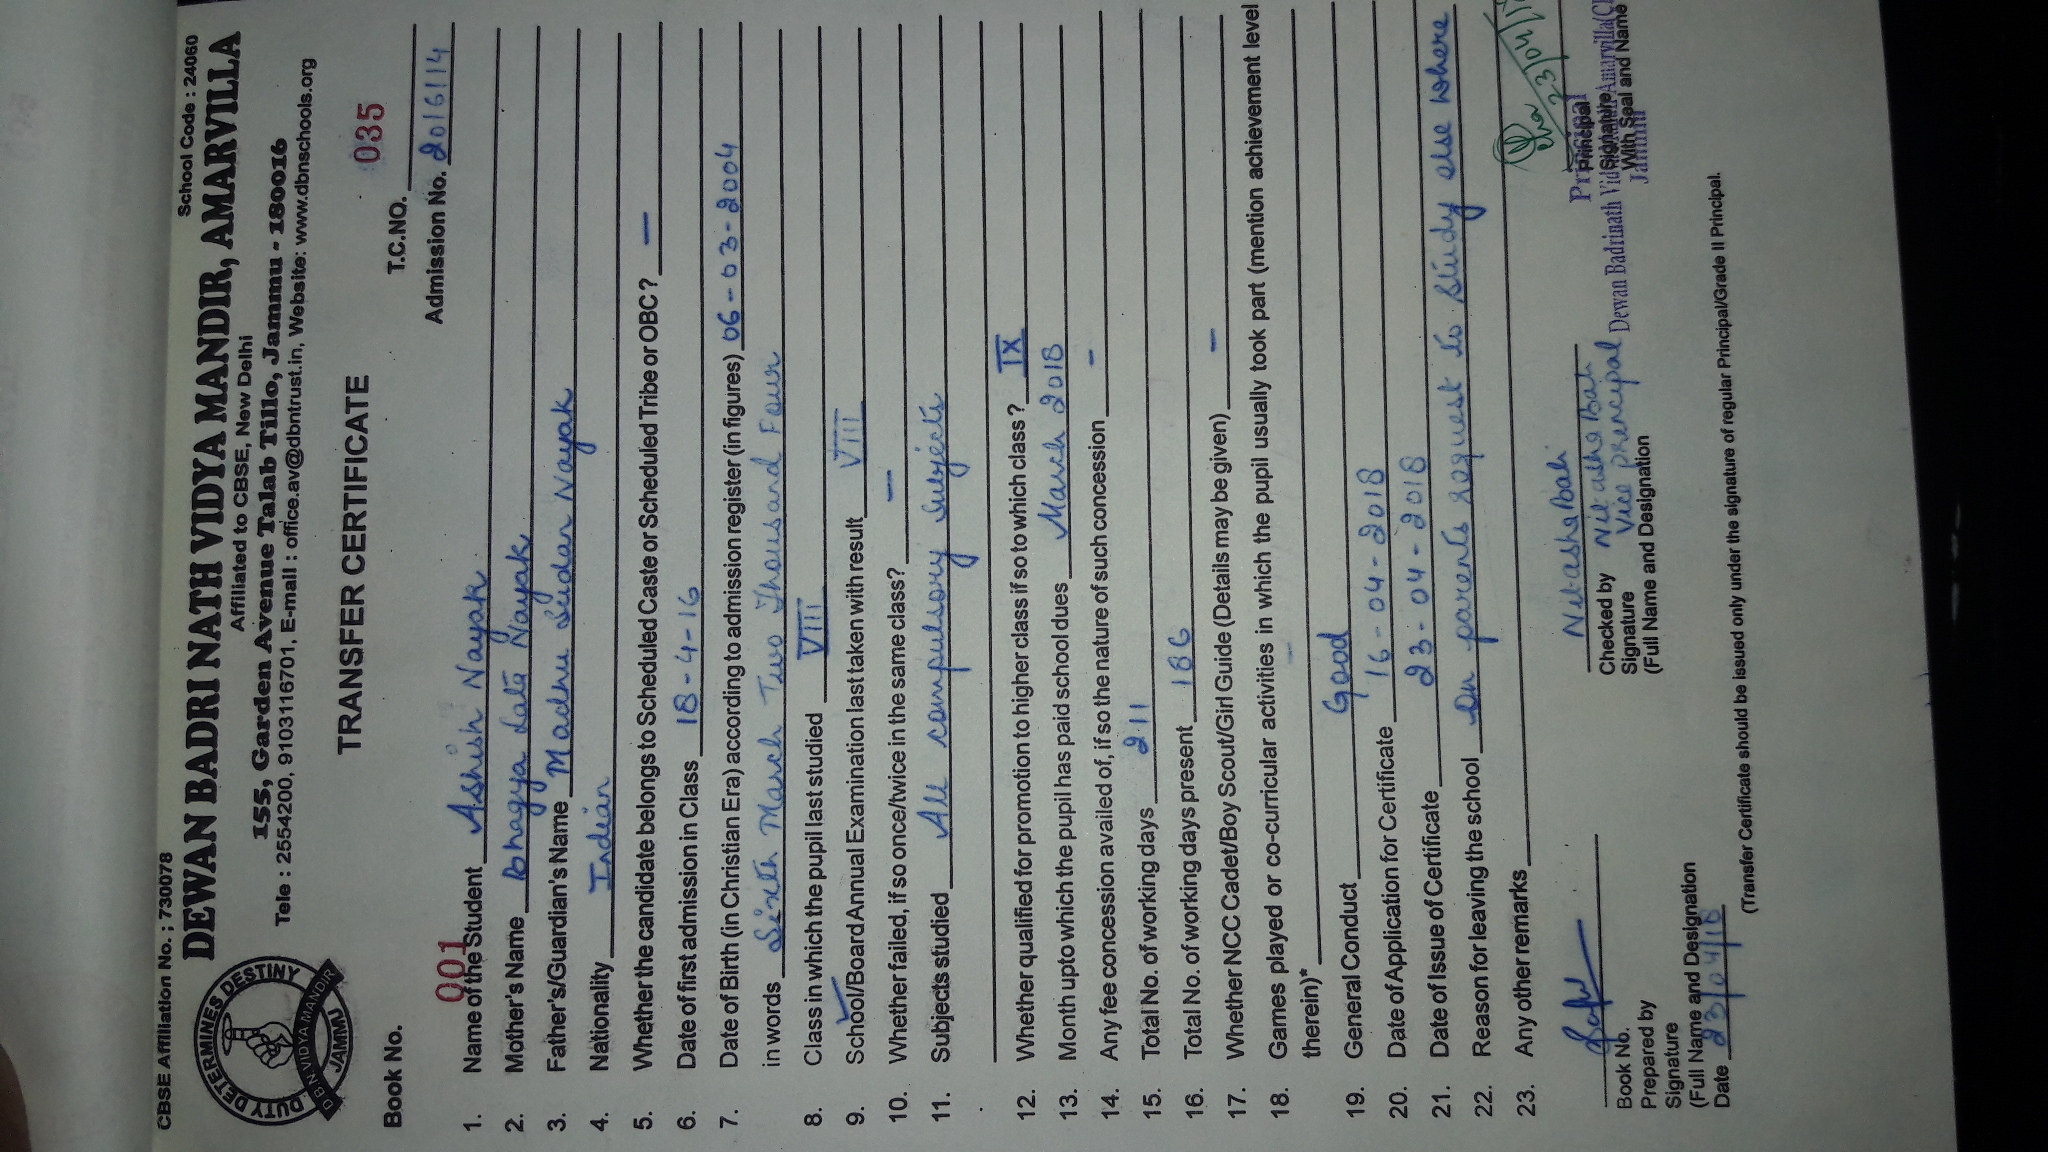 CBSE Affiliation No. ; 730078 School Code : 24060
DEWAN BADRI NATH VIDYA MANDIR, AMARVILLA
Affiliated to CBSE, New Delhi
155, Garden Avenue Talab Tillo, Jammu - 180016
Tele : 2554200, 9103116701, E-mail : office.av@dbntrust.in, Website: www.dbnschools.org
DUTY DETERMINES DESTINY
D B N VIDYA MANDIR
JAMMU
TRANSFER CERTIFICATE
035
Book No. T.C.NO.
001 Admission No. 20161114
1. Name of the Student Ashish Nayak
2. Mother's Name Bhagya Late Nayak
3. Father's/Guardian's Name Madhu Sudan Nayak
4. Nationality Indian
5. Whether the candidate belongs to Scheduled Caste or Scheduled Tribe or OBC? —
6. Date of first admission in Class 18-4-16
7. Date of Birth (in Christian Era) according to admission register (in figures) 06-03-2004
in words Sixth March Two Thousand Four
8. Class in which the pupil last studied VIII
9. School/Board Annual Examination last taken with result VIII
10. Whether failed, if so once/twice in the same class? —
11. Subjects studied All compulsory Subjects
12. Whether qualified for promotion to higher class if so to which class? IX
13. Month upto which the pupil has paid school dues March 2018
14. Any fee concession availed of, if so the nature of such concession -
15. Total No. of working days 211
16. Total No. of working days present 186
17. Whether NCC Cadet/Boy Scout/Girl Guide (Details may be given) -
18. Games played or co-curricular activities in which the pupil usually took part (mention achievement level
therein)*
19. General Conduct Good
20. Date of Application for Certificate 16-04-2018
21. Date of Issue of Certificate 23-04-2018
22. Reason for leaving the school On parents request to study else where
23. Any other remarks
Book No.
Prepared by
Signature
(Full Name and Designation
Date 23/04/18
Checked by
Signature Vice principal
(Full Name and Designation
Principal
Signature
With Seal and Name
Principal
Dewan Badrinath Vid Amarvilla
Jammu
(Transfer Certificate should be issued only under the signature of regular Principal/Grade II Principal.